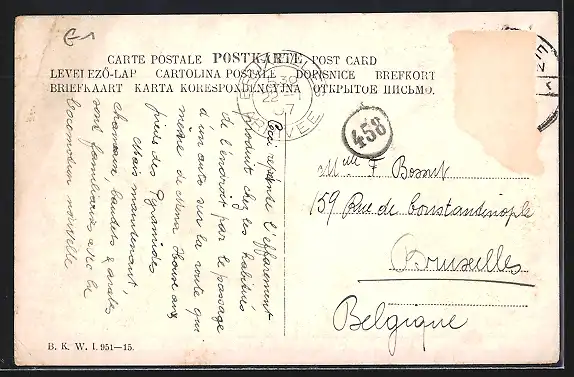 E-1
CARTE POSTALE POSTKARTE POST CARD
LEVELEZŐ-LAP CARTOLINA POSTALE DOPISNICE BREFKORT
BRIEFKAART KARTA KORESPONDENCYJNA ОТКРЫТОЕ ПИСЬМО.
22
ARRIVÉE
458
Ceci représente l'effarement
produit chez les habitués
de l'endroit par le passage
d'un auto sur la route qui
mène de Mena House aux
pieds des Pyramides
Mais maintenant,
chameaux, baudets & arabes
sont familiarisés avec la
locomotion nouvelle
Mlle F
159 Rue de Constantinople
Bruxelles
Belgique
B. K. W. I. 951—15.